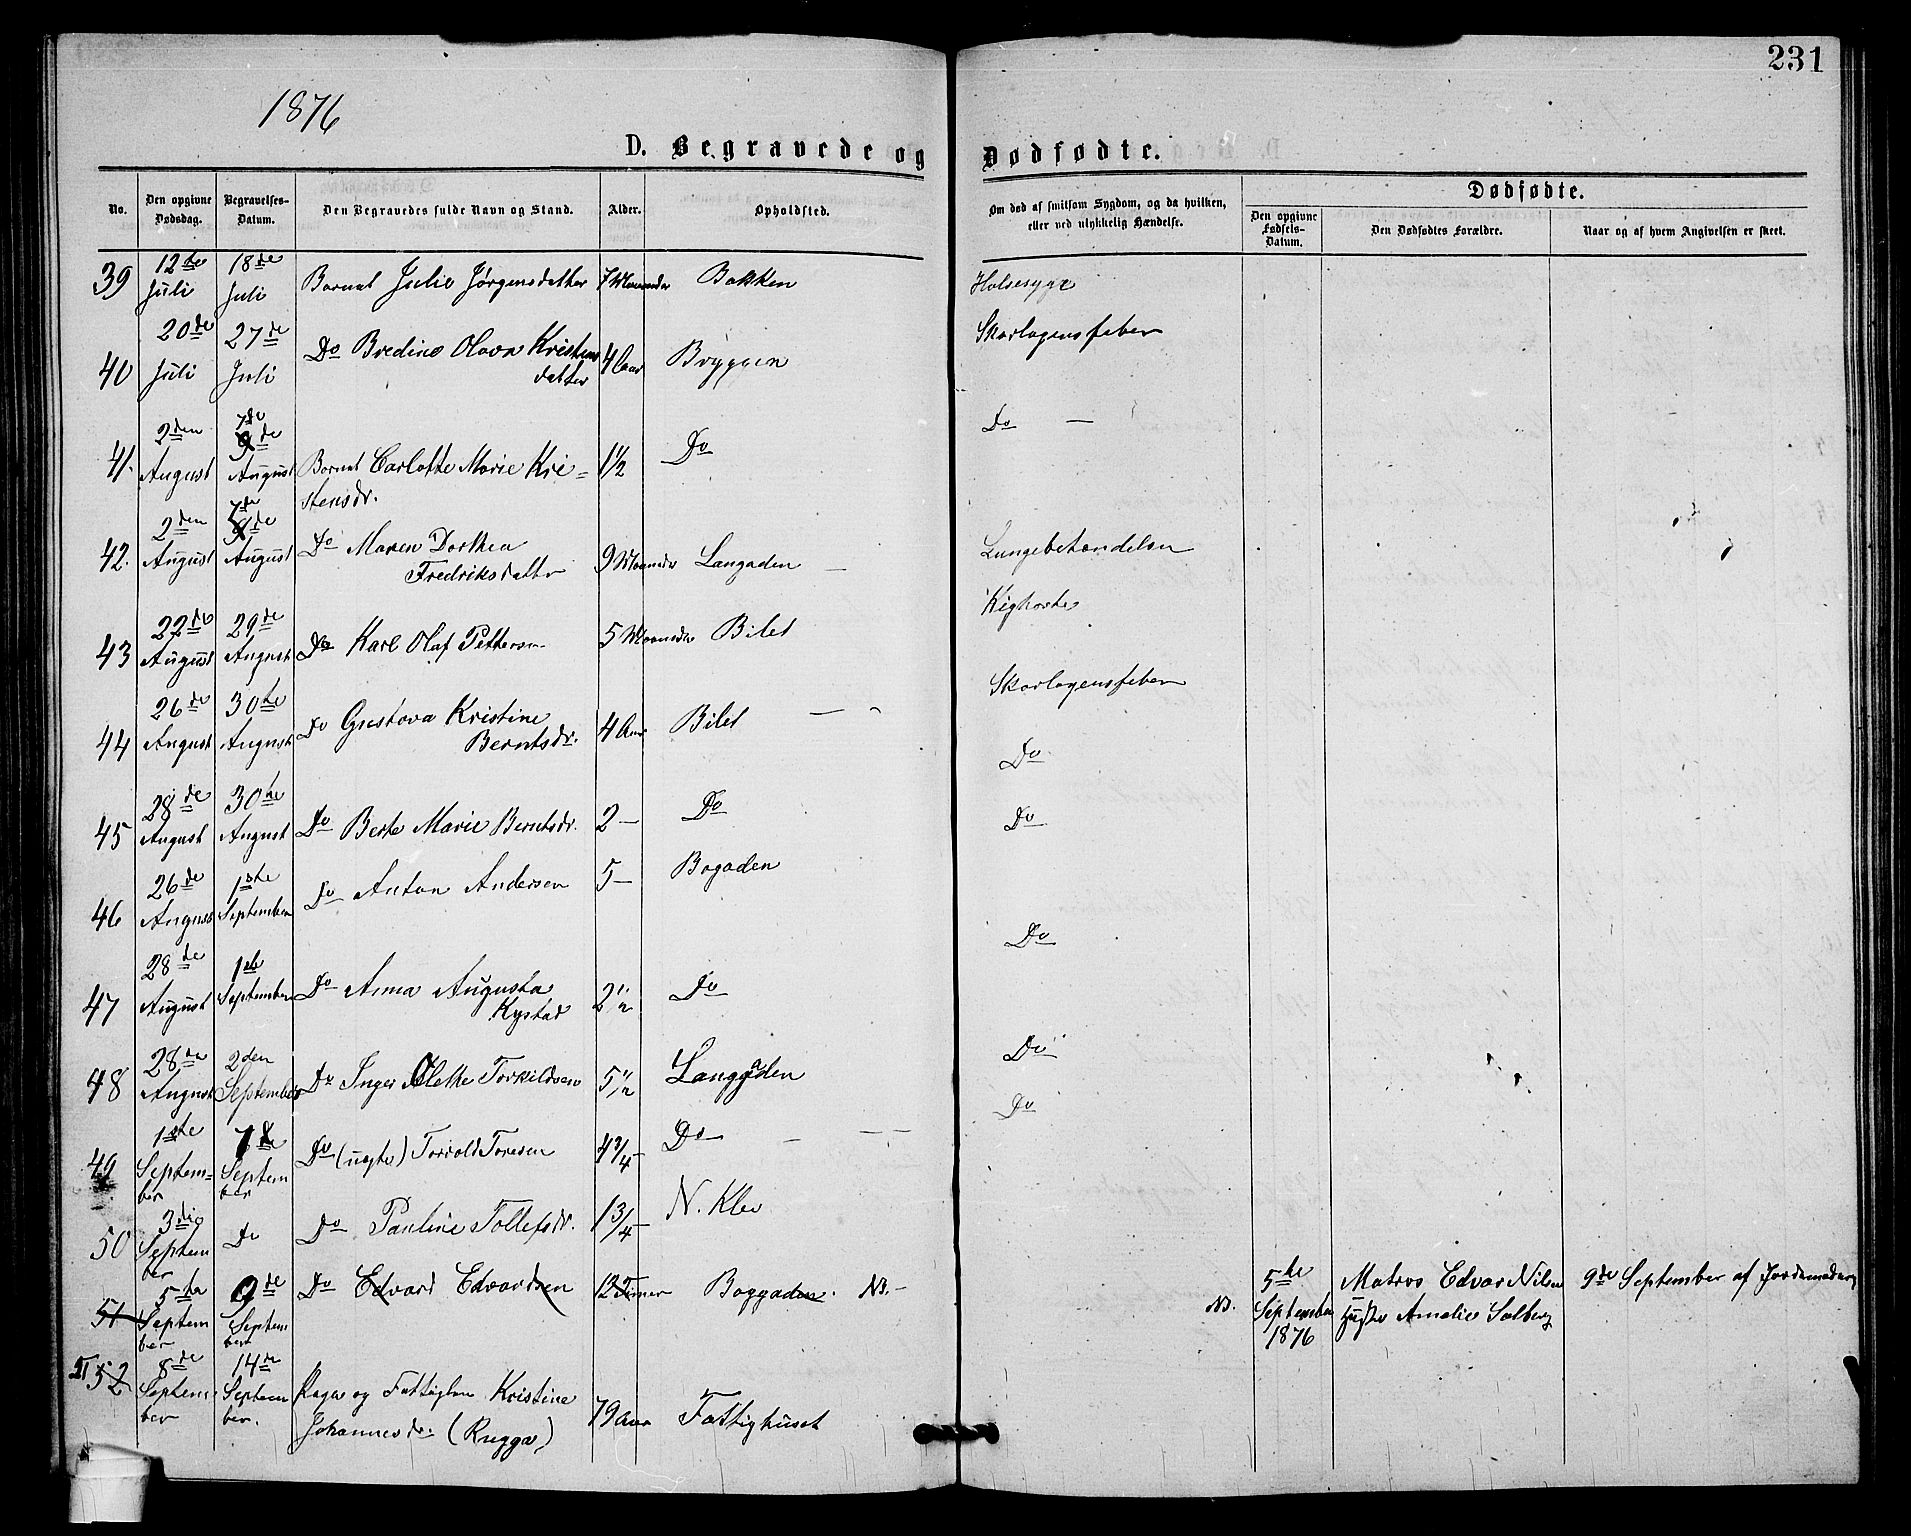 231
1876
D. Begravede og Dødfødte.
No. Den opgivne Dødsdag. Begravelses-Datum. Den Begravedes fulde Navn og Stand. Alder. Opholdsted. Om død af smitsom Sygdom, og da hvilken, eller ved ulykkelig Hændelse. Dødfødte.
Den opgivne Fødsels-Datum. Den Dødfødtes Forældre. Naar og af hvem Angivelsen er skeet.
39 12te Juli 18de Juli Barnet Julie Jørgensdatter 7 Maaneder Bakken Halsesyge
40 20de Juli 27de Juli Do Bredine Olava Kristens datter 4 Aar Bryggen Skarlagensfeber
41. 2den August 7de August Barnet Carlotte Marie Kri-
stensdr. 1½ Do Do —
42. 2den August 7de August Do Maren Dorthea
Fredriksdatter 9 Maaneder Langaden Lungebetændelse
43 22de August 29de August Do Karl Olaf Pettersen 5 Maaneder Bilet Kighoste
44 26de August 30te August Do Gustava Kristine
Berntsdr. 4 Aar Bilet Skarlagensfeber
45 28de August 30te August Do Berte Marie Berntsdr. 2 — Do Do
46 26de August 1ste September Do Anton Andersen 5 — Bogaden Do
47 28de August 1ste September Do Anna Augusta
Kystad 2½ Do Do
48 28de August 2den September Do Inger Olette Torkildsen 5½ Langgaden Do
49 1ste Septem-
ber Septem
ber Do (uægte) Torvald Toresen 4¾ — Do Do
50 3die Septem
ber Do Do Pauline Tollefsdr. 1¾ — N. Klev
51 5te Septem
ber 9de Septem
ber Do Edvard Edvardsen 12 Timer Boggaden. NB. —
NB. 5te September 1876 Matros Edvard Nilsen
Hustru Amalie Solberg 9de September af Jordemoderen
51 52 8de Septem
ber 14de Septem
ber. Pige og Fattiglem Kristine
Johannesdr. (Rugga) 79 Aar Fattighuset